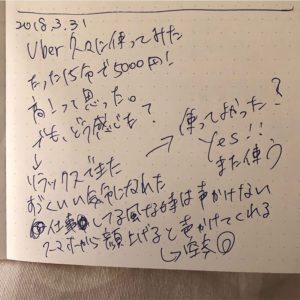 2018.3.31
Uber 久々に使ってみた
たった15分で5000円!
高!って思った。
でも、どう感じた?
↓
リラックスできた
すごくいい気分になれた
仕事してる風な時は声かけない
スマホから顔上げると声かけてくれる
↳ 接客
→ 使ってよかった?
Yes!!
また使う